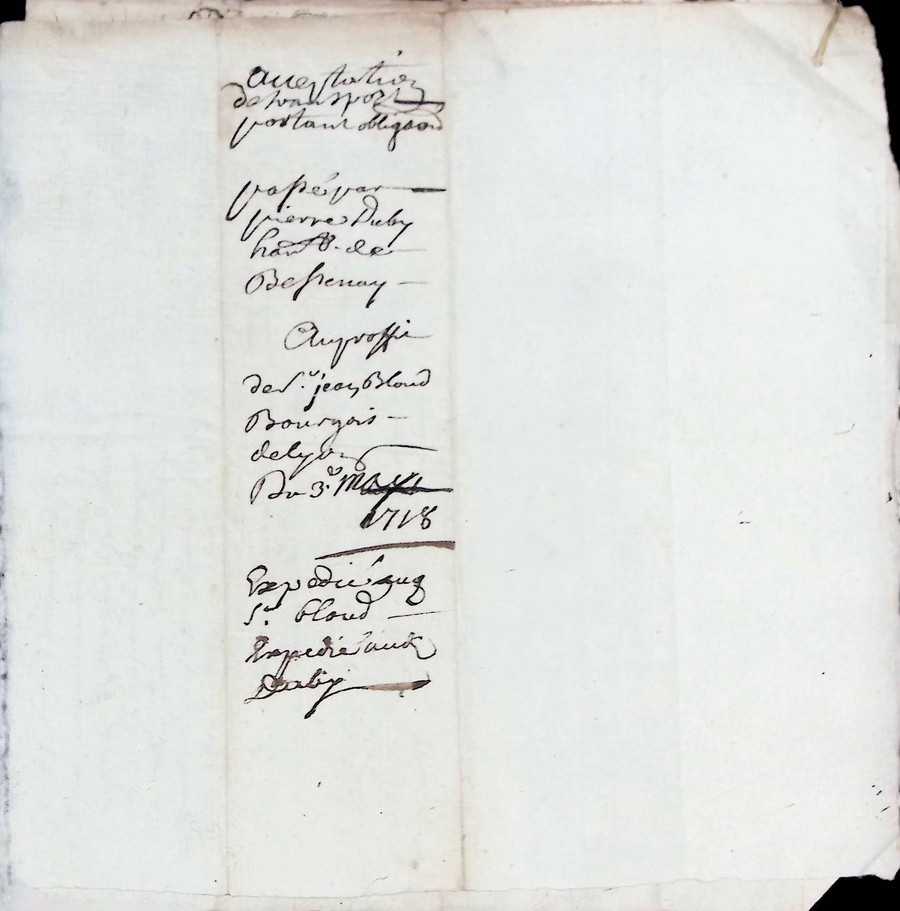 Acceptation
de transport
portant obligaon
passé par
pierre Duby
hant. de
Bessenay
Au proffit
de Sr. jean Bloud
Bourgois
de Lyon
Du 3e. May
1718
Expedié aud
Sr. bloud
Expedié aud
Duby